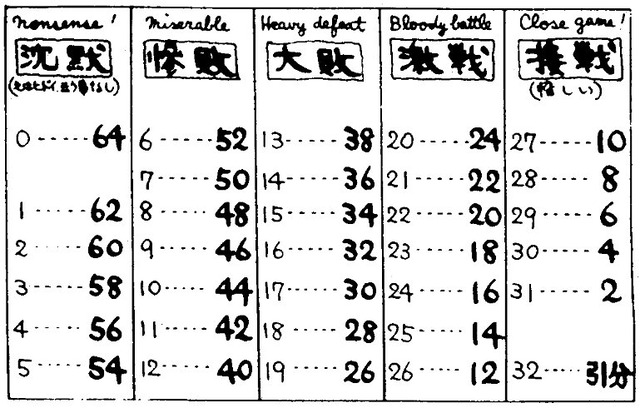 nonsense!
沈黙
0 ----- 64
1 ----- 62
2 ----- 60
3 ----- 58
4 ----- 56
5 ----- 54
Miserable
惨敗
6 ----- 52
7 ----- 50
8 ----- 48
9 ----- 46
10 ----- 44
11 ----- 42
12 ----- 40
Heavy defeat
大敗
13 ----- 38
14 ----- 36
15 ----- 34
16 ----- 32
17 ----- 30
18 ----- 28
19 ----- 26
Bloody battle
激戦
20 ----- 24
21 ----- 22
22 ----- 20
23 ----- 18
24 ----- 16
25 ----- 14
26 ----- 12
Close game!
接戦
27 ----- 10
28 ----- 8
29 ----- 6
30 ----- 4
31 ----- 2
32 ----- 引分